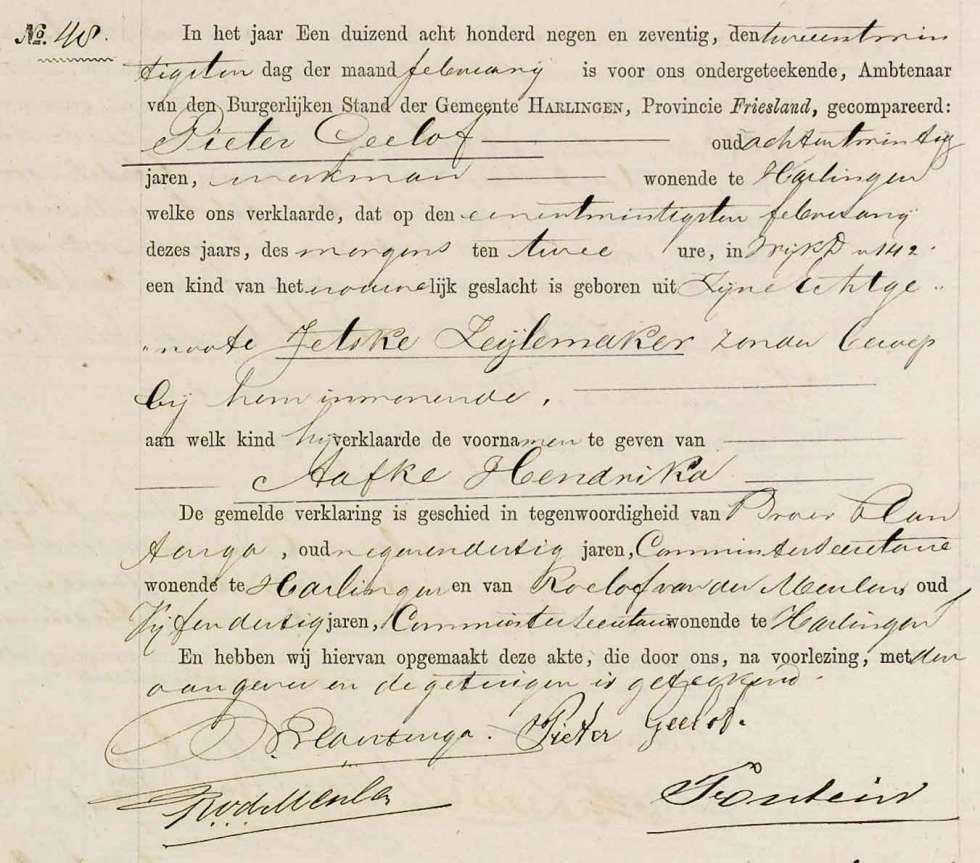 No. 48.
In het jaar Een duizend acht honderd negen en zeventig, den tweeentwin
tigsten dag der maand februarij is voor ons ondergeteekende, Ambtenaar
van den Burgerlijken Stand der Gemeente HARLINGEN, Provincie Friesland, gecompareerd:
Pieter Geelof oud achtentwintig
jaren, werkman wonende te Harlingen
welke ons verklaarde, dat op den eenentwintigsten februarij
dezes jaars, des morgens ten twee ure, in Wijk D n 142
een kind van het vrouwelijk geslacht is geboren uit Zijne Echtge
noote Jetske Zeijlemaker zonder beroep
bij hem inwonende,
aan welk kind hij verklaarde de voornamen te geven van
Aafke Hendrika
De gemelde verklaring is geschied in tegenwoordigheid van Broer Plan
tenga, oud negenendertig jaren, Commies ter Secretarie
wonende te Harlingen en van Roelof van der Meulen, oud
Vijfendertig jaren, Commies ter Secretarie wonende te Harlingen
En hebben wij hiervan opgemaakt deze akte, die door ons, na voorlezing, met den
aangever en de getuigen is geteekend.
B. Plantenga. Pieter Geelof.
R. v. d. Meulen Fontein